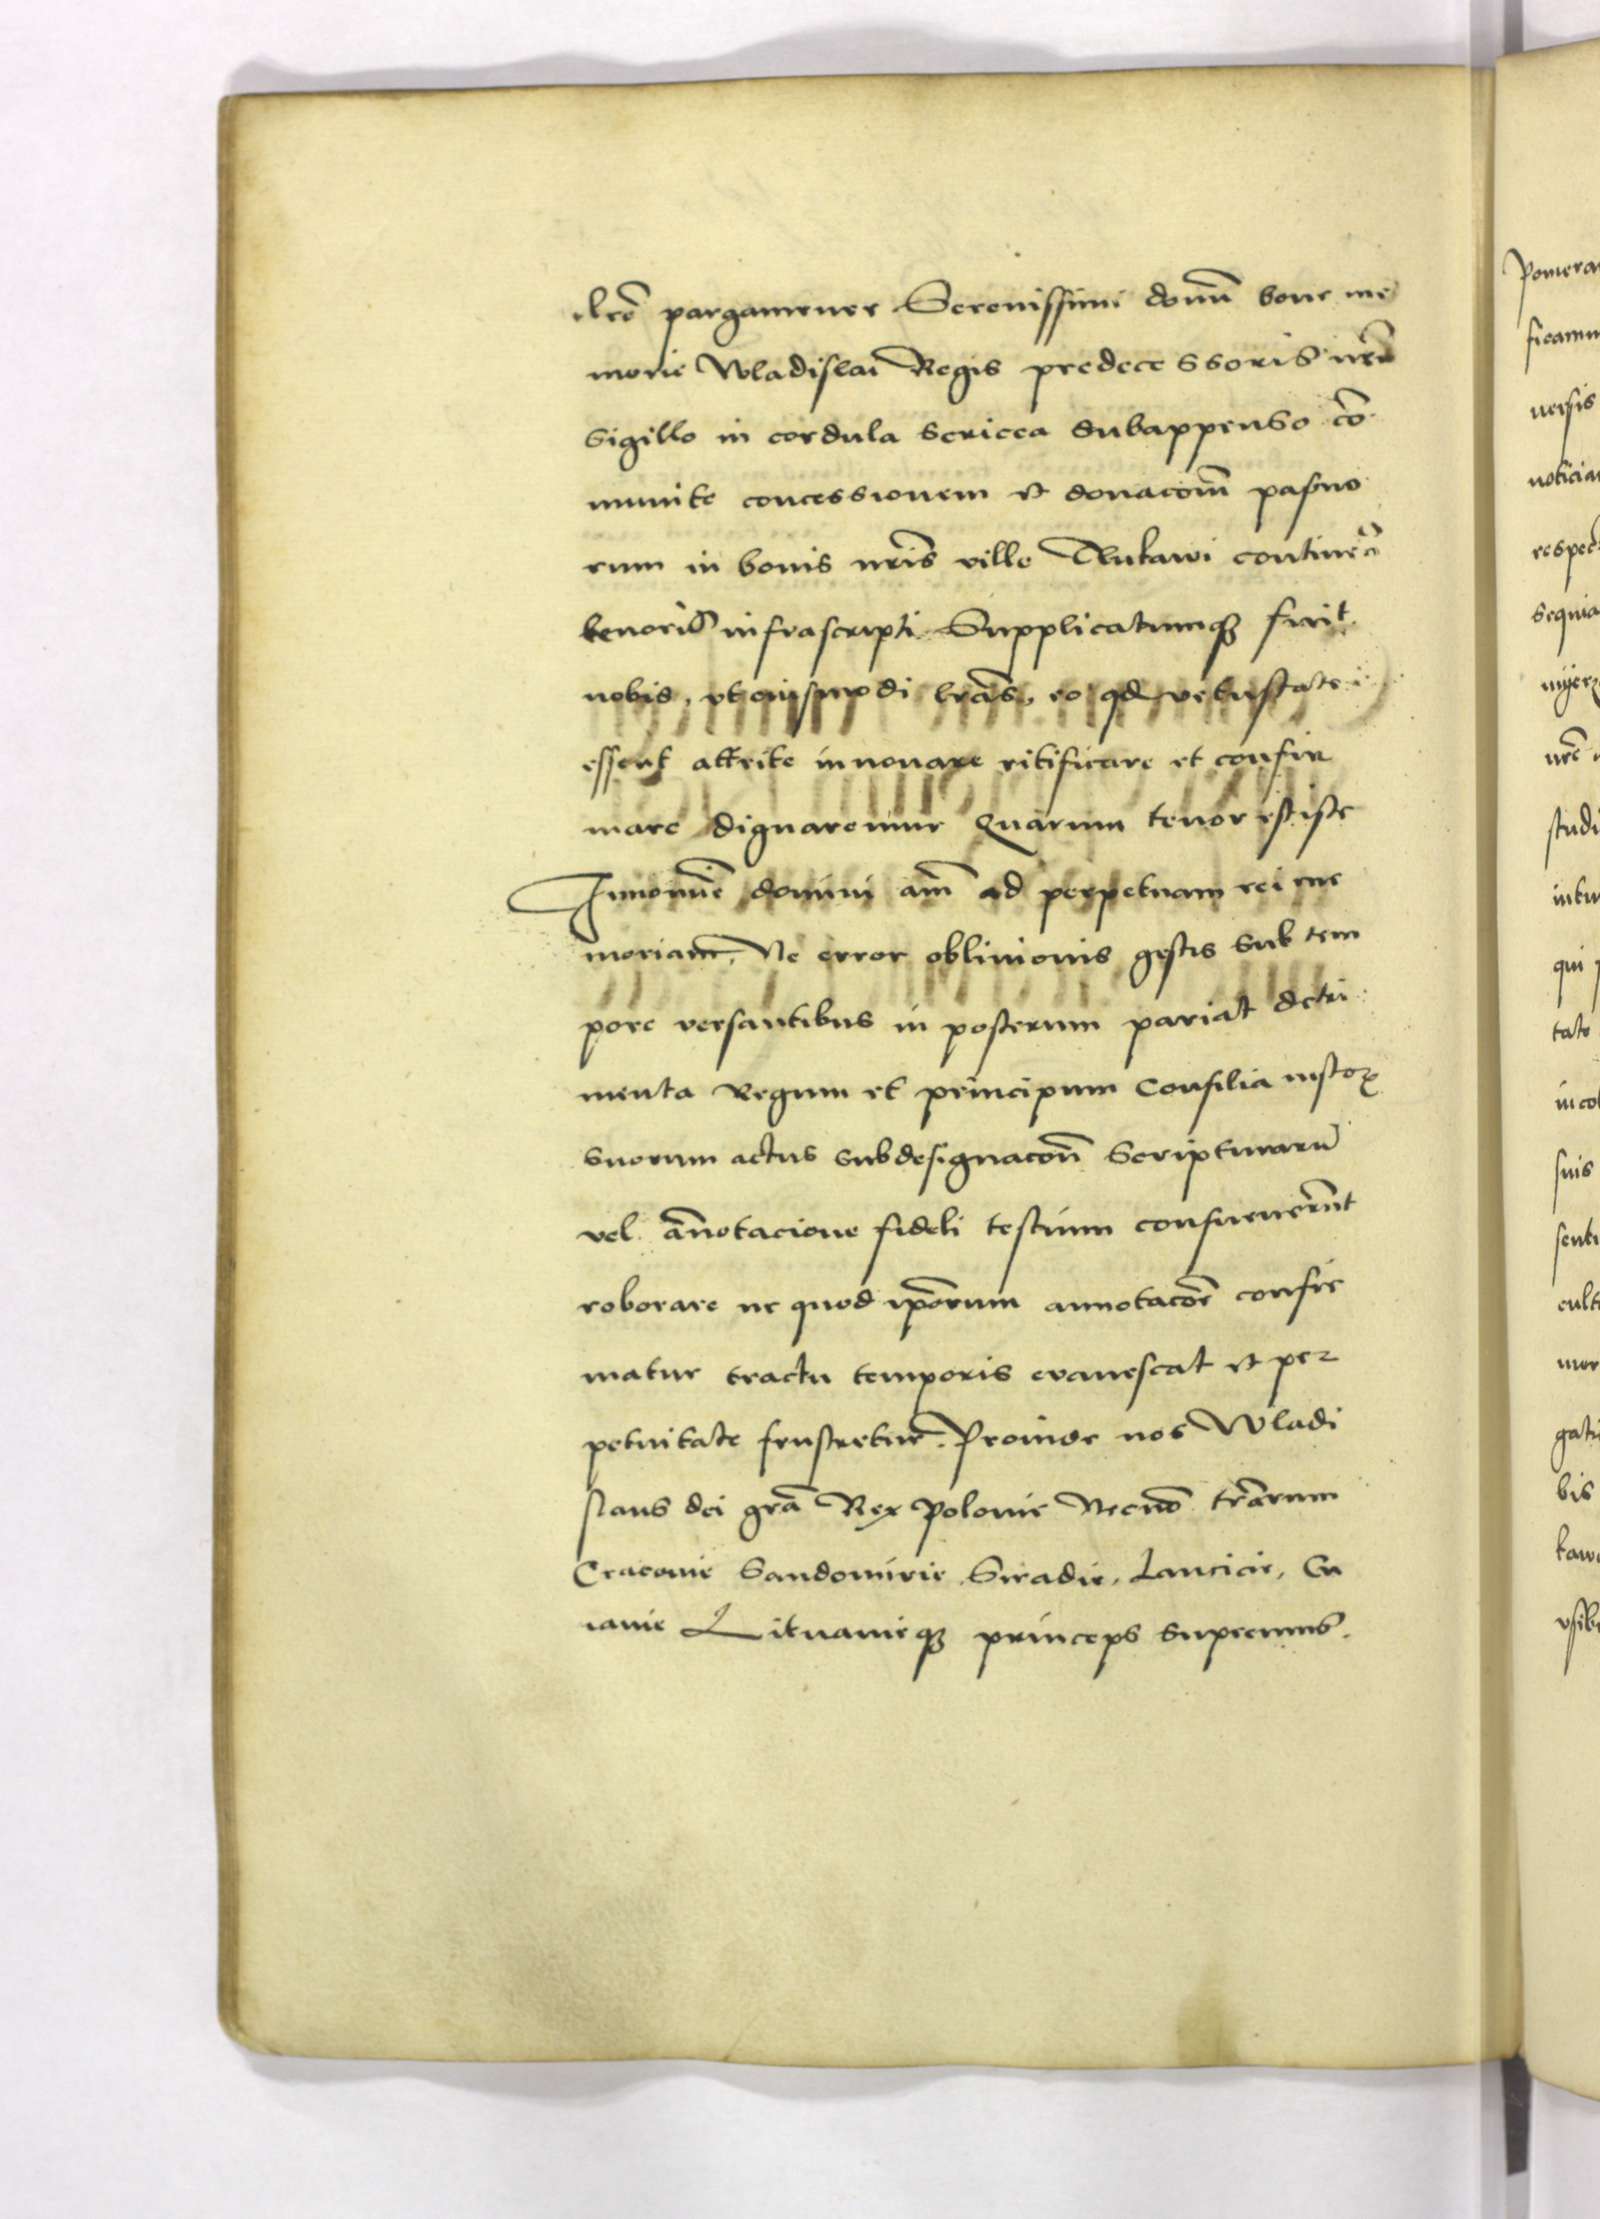 lr̃e pargamenee Serenissimi domi͂ bone me
morie Wladislai Regis predecessoris nr̃i
sigillo in cordula sericea subappenso co͂
munite concessionem et donacom͂ pasno
rum in bonis nr̃is ville continen͂
tenoris infrascripti Supplicatumqz fuit
nobis, vt eiusmodi lr̃as, eo qd vetustate
essent attrite innouare ritificare et confir
mare dignaremur Quarum tenor est iste
Innomi͂e domini am͂ ad perpetuam rei me
moriam, Ne error obliuionis gestis sub tem
pore versantibus in posterum pariat detri
menta Regum et principum Consilia
suorum actus subdesignacoi͂ Scripturaru͂
vel a͂notacione fideli testium consueueru͂nt
roborare ne quod ip͂orum annotaco͂e confir
matur tractu temporis evanescat et per
petuitate frustretur. Proinde nos Wladi
slaus dei gr͂a Rex Polonie Necno͂ tr͂arum
Cracouie Sandomirie Siradie, Lancicie, Cu
iauie Lituanieqz princeps supremus.
Pomera
ficamu
uersis
noticia
respec
sequia
nr͂e
studi
intu
qui
tate
incol
suis
senti
cult
mer
gatu
bis
kaw
vsib